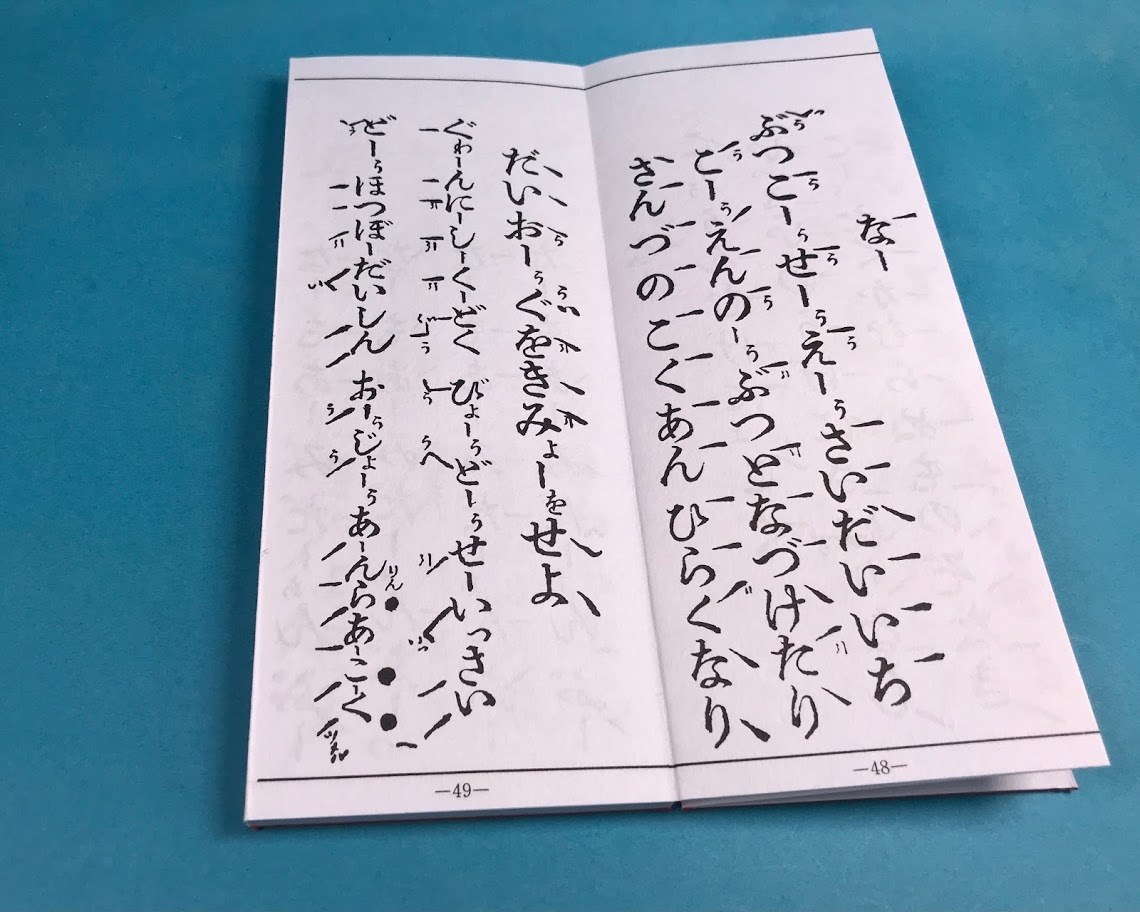 なー
ぶつこーぅせーぅえーぅさいだいいち
こーぅえんのーぅぶつとなづけたり
さんづのこくあんひらくなり
—48—
だいおーぅぐをきみょーをせよ
ぐゎーんにーしーくーどく びょーぅどーぅせーいっさい
どーぅほつぼーだいしん おーぅじょーぅあーんらあーこーく
りん
—49—